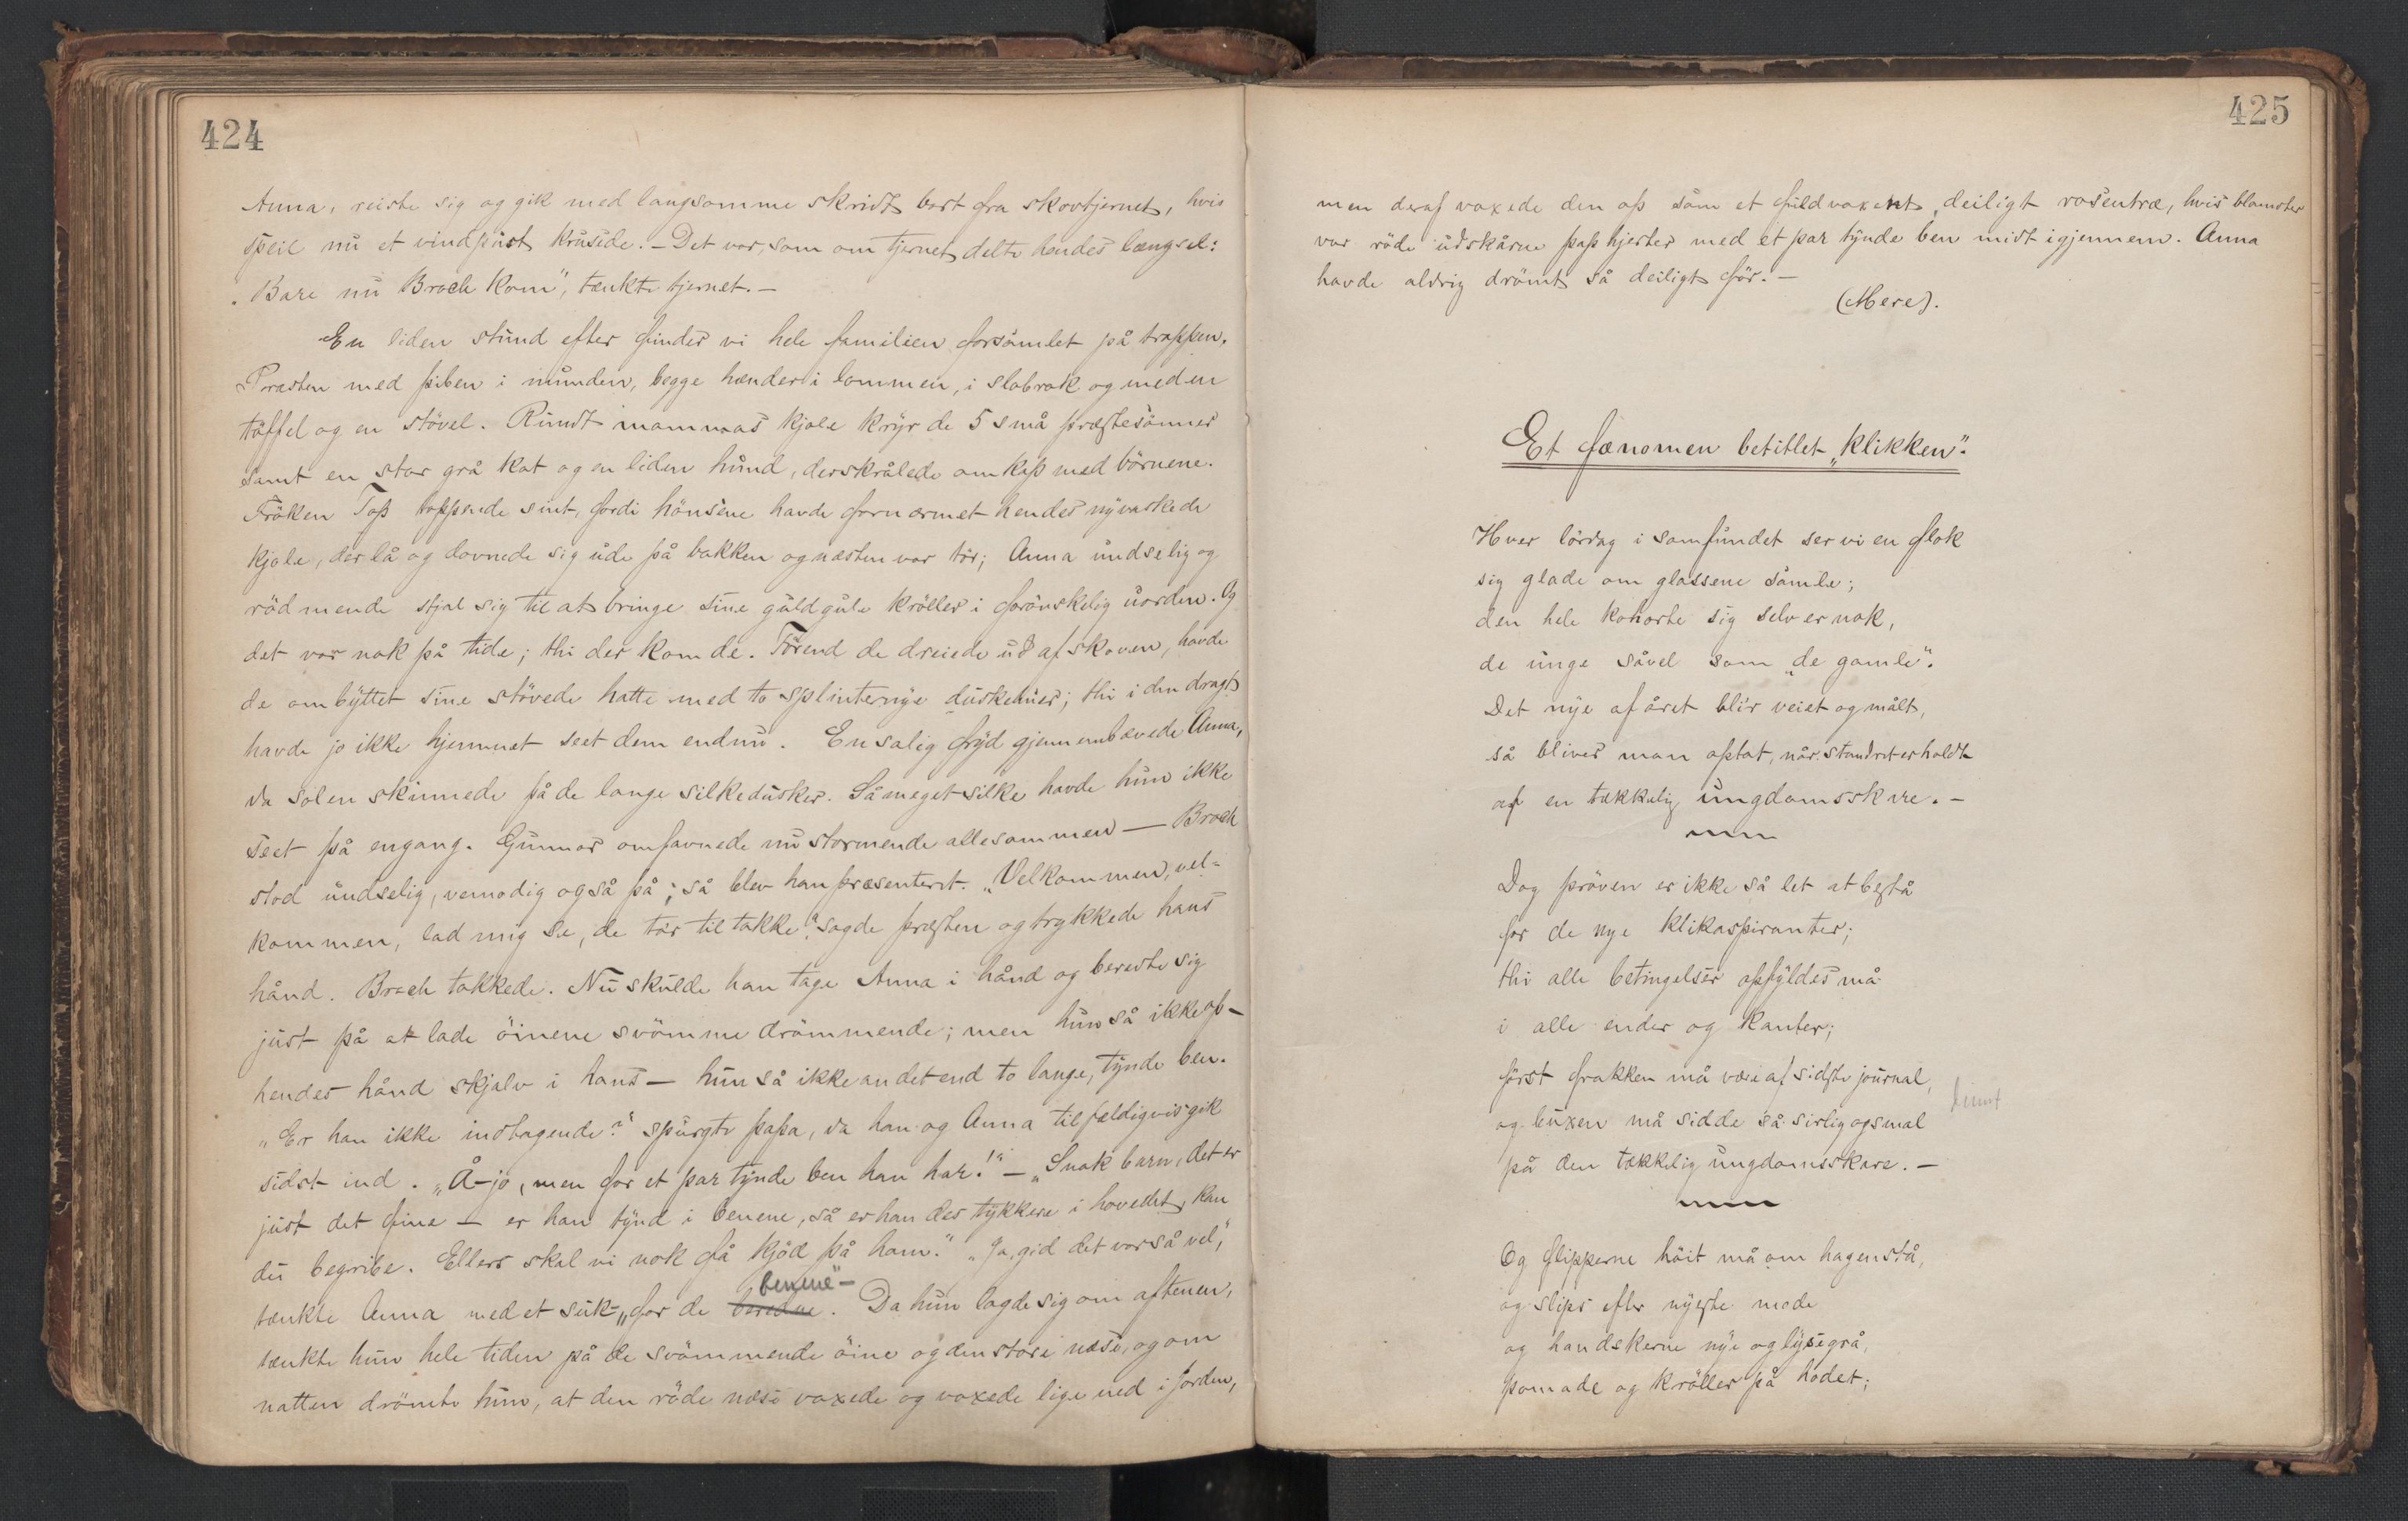 424
Anna, reiste sig og gik med langsomme skridt bort fra skovtjernet, hvis
speil nu et vindpust krusede. – Det var, som om tjernet delte hendes længsel:
„Bare nu Broch kom", tænkte tjernet. –
En liden stund efter finder vi hele familien forsamlet på trappen.
Præsten med piben i munden, begge hænder i lommen, i slobrok og med en
töffel og en stövel. Rundt mammas kjole kryr de 5 små præstesönner
samt en stor grå kat og en liden hund, der skrålede om kap med börnene.
Fröken Top toppende sint, fordi hönsene havde fornærmet hendes nyvaskede
kjole, der lå og dovnede sig ude på bakken og næsten var tör; Anna undselig og
rödmende stjal sig til at bringe sine guldgule kröller i förönskelig uorden. Og
det var nok på tide; thi der kom de. Förend de dreiede ud af skoven, havde
de ombyttet sine stövede hatte med to splinternye duskeluer; thi i den dragt
havde jo ikke hjemmet seet dem endnu. En salig fryd gjennembævede Anna,
da solen skinnede på de lange silkedusker. Så meget silke havde hun ikke
seet på engang. Gunnar omfavnede nu stormende allesammen — Broch
stod undselig, vemodig og så på; så blev han præsenteret. „Velkommen, vel=
kommen, lad mig se, de tar til takke" sagde præsten og trykkede hans
hånd. Broch takkede. Nu skulde han tage Anna i hånd og beredte sig
just på at lade öinene svömme drömmende; men hun så ikke op –
hendes hånd skjalv i hans – hun så ikke andet end to lange, tynde ben.
„Er han ikke indtagende?" spurgte papa, da han og Anna tilfældigvis gik
sidst ind. „Å–jo, men for et par tynde ben han har!" – „Snak barn, det er
just det fine – er han tynd i benene, så er han des tykkere i hovedet, kan
du begribe. Ellers skal vi nok få kjöd på ham." „Ja, gid det var så vel,"
benene" –
tænkte Anna med et suk – „for de . Da hun lagde sig om aftenen,
tænkte hun hele tiden på de svömmende öine og den store næse, og om
natten drömte hun, at den röde næse voxede og voxede lige ned i jorden,
425
men deraf voxede den op som et fuldvoxent, deiligt rosentræ, hvis blomster
var röde udskårne paphjerter med et par tynde ben midt igjennem. Anna
havde aldrig drömt så deiligt för. –
(Mere).
Et fænomen betitlet „Klikken".
Hver lördag i samfundet ser vi en flok
sig glade om glassene samle;
den hele kohorte sig selv er nok,
de unge såvel som „de gamle".
Det nye af året bli'r veiet og målt,
så bliver man optat, når standret er holdt
af en tækkelig ungdomsskare. –
Dog pröven er ikke så let at bestå
for de nye klikaspiranter;
thi alle betingelser opfyldes må
i alle ender og kanter;
först frakken må være af sidste journal,
og buxen må sidde så sirlig og smal
på den tækkelig ungdomsskare. –
Og flipperne höit må om hagen stå,
og slips efter nyeste mode
og handskerne nye og lysegrå,
pomade og kröller på hodet;